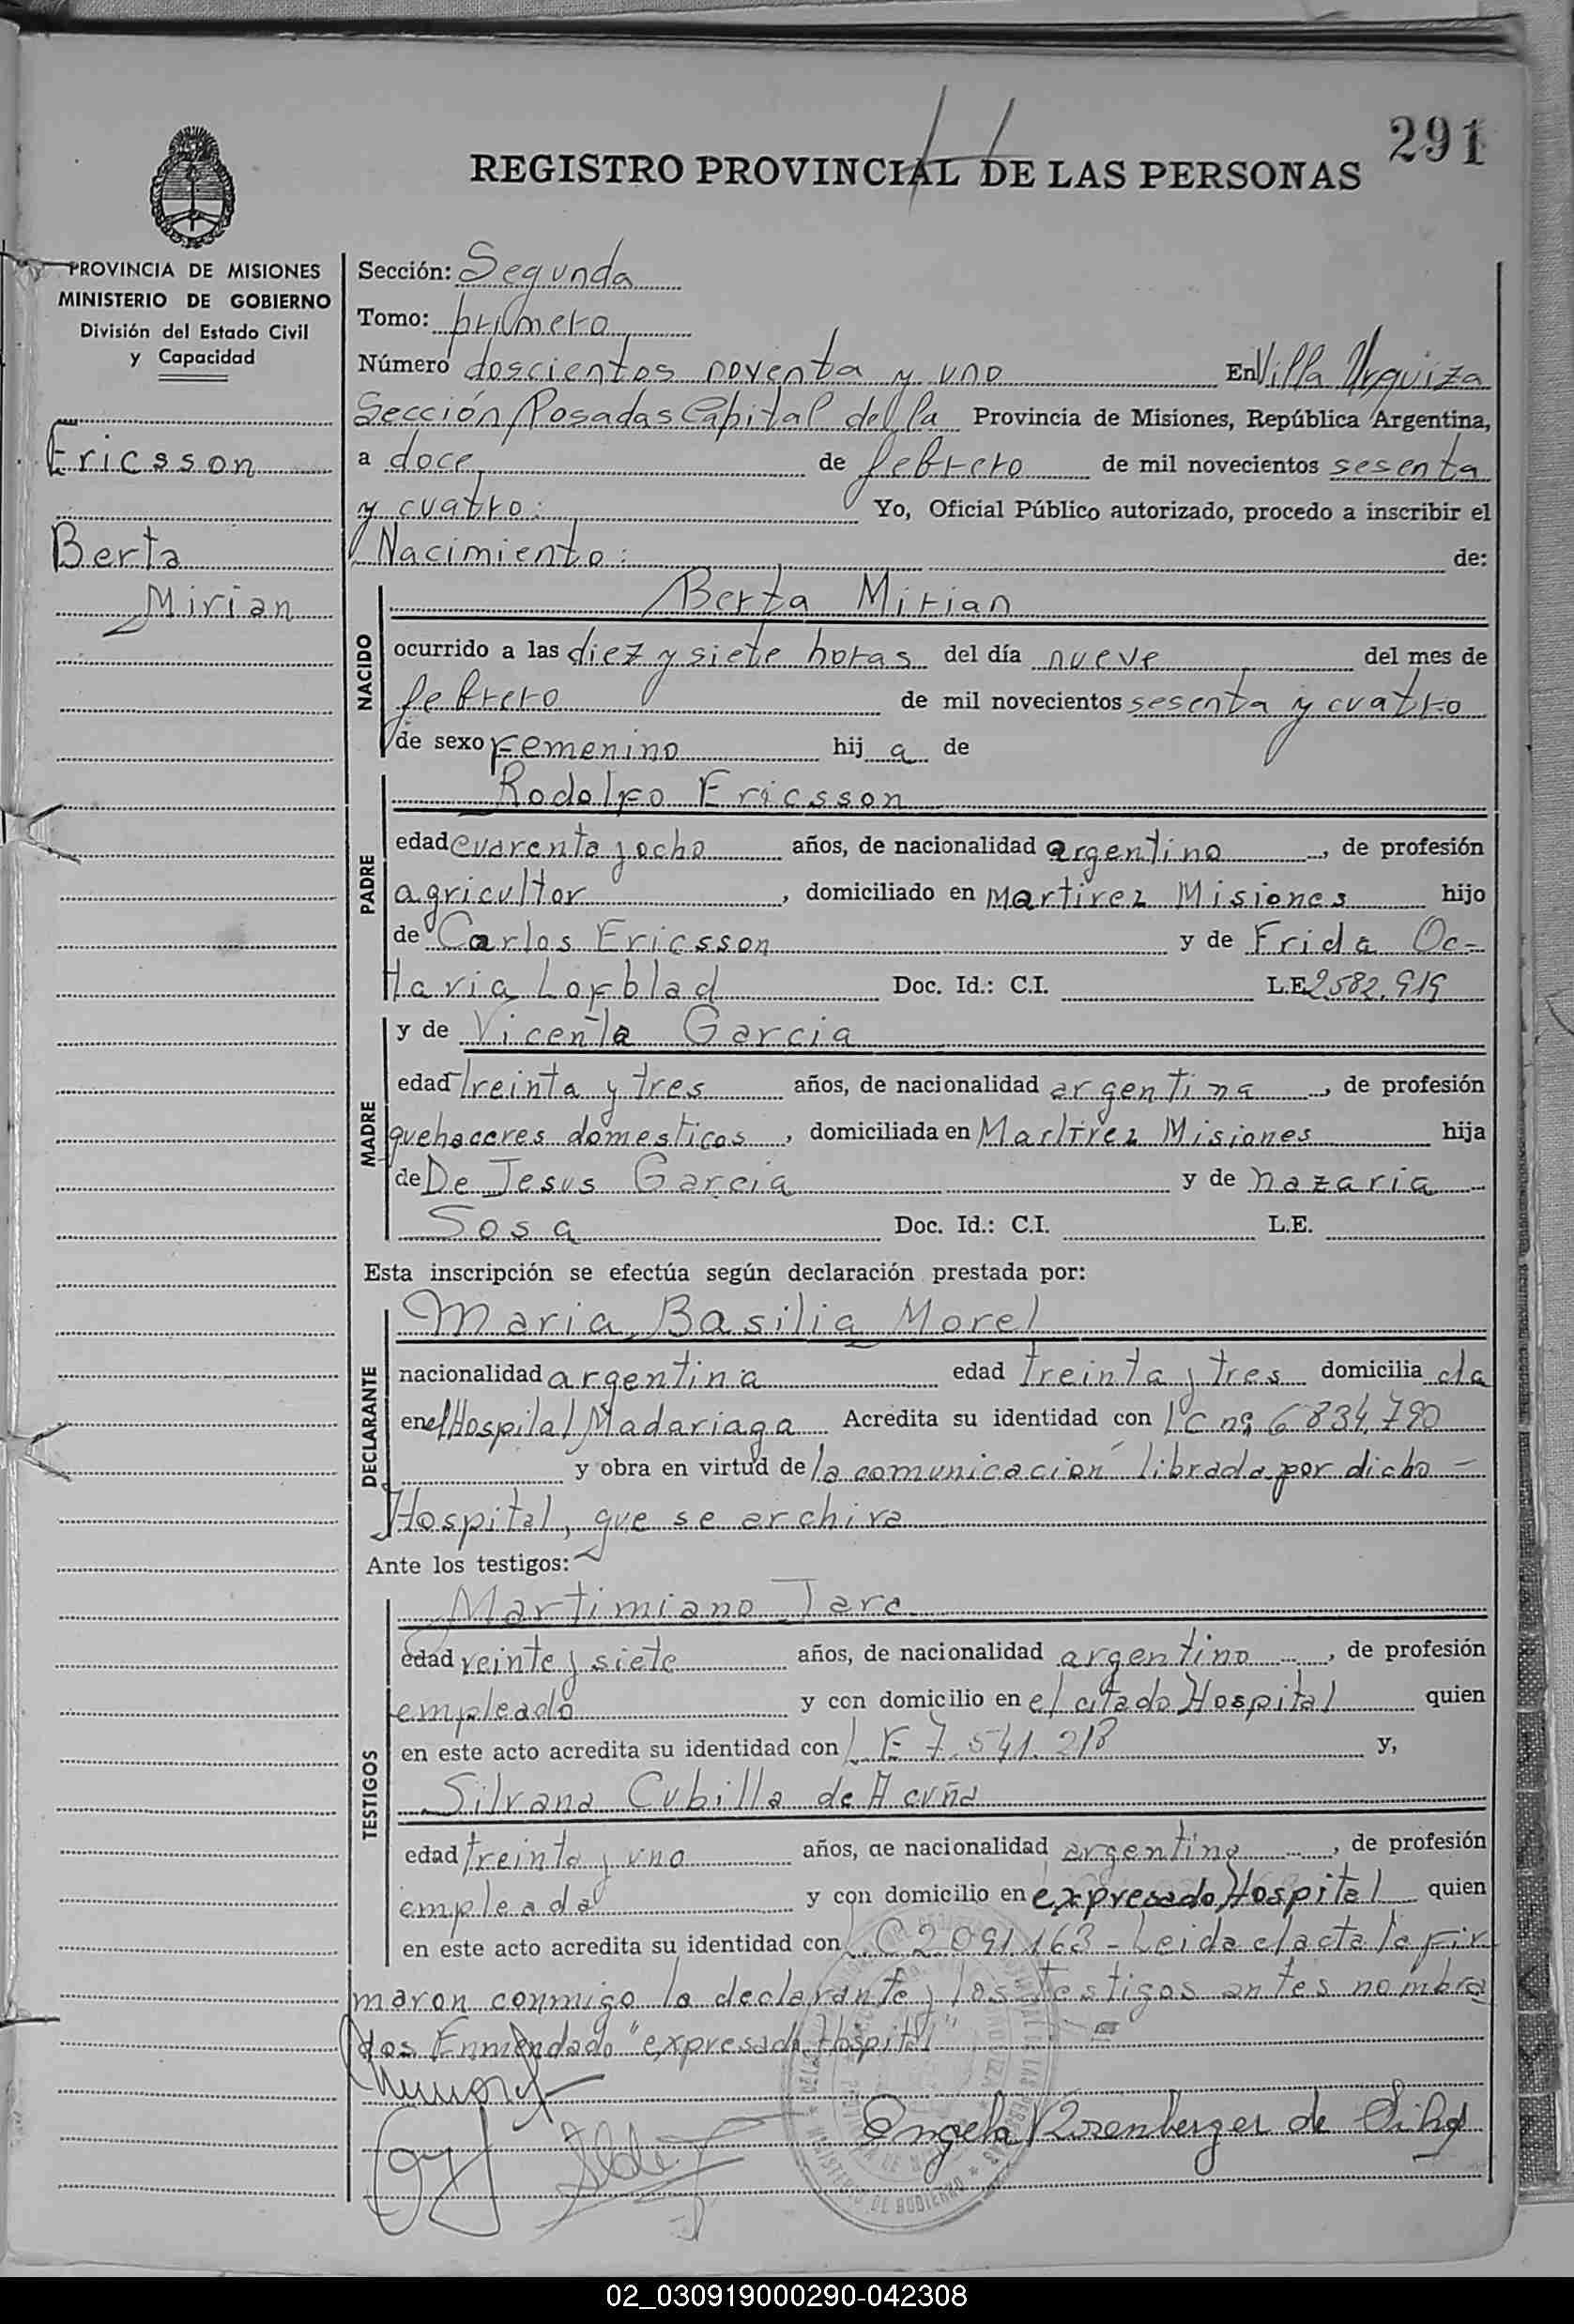 291
REGISTRO PROVINCIAL DE LAS PERSONAS
PROVINCIA DE MISIONES
MINISTERIO DE GOBIERNO
División del Estado Civil
y Capacidad
Ericsson
Berta
Mirian
Sección: Segunda
Tomo: primero
Número doscientos noventa y uno En Villa Urquiza
Sección Posadas Capital de la Provincia de Misiones, República Argentina,
a doce de febrero de mil novecientos sesenta
y cuatro: Yo, Oficial Público autorizado, procedo a inscribir el
Nacimiento: de:
NACIDO
Berta Mirian
ocurrido a las diez y siete horas del día nueve del mes de
febrero de mil novecientos sesenta y cuatro
de sexo Femenino hij a de
PADRE
Rodolfo Ericsson
edad cuarenta y ocho años, de nacionalidad argentino, de profesión
agricultor, domiciliado en Martirez Misiones hijo
de Carlos Ericsson y de Frida Oc-
tavia Lofblad Doc. Id.: C.I. L.E. 2582.919
MADRE
y de Vicenta Garcia
edad treinta y tres años, de nacionalidad argentina, de profesión
quehaceres domesticos, domiciliada en Martirez Misiones hija
de De Jesus Garcia y de nazaria
Sosa Doc. Id.: C.I. L.E.
Esta inscripción se efectúa según declaración prestada por:
DECLARANTE
Maria Basilia Morel
nacionalidad argentina edad treinta y tres domicilia da
en el Hospital Madariaga Acredita su identidad con L C nº 6834.790
y obra en virtud de la comunicación librada por dicho -
Hospital, que se archiva
Ante los testigos:
TESTIGOS
Martimiano Jara
edad veinte y siete años, de nacionalidad argentino, de profesión
empleado y con domicilio en el citado Hospital quien
en este acto acredita su identidad con L E 7.541.218 y,
Silvana Cubilla de Acuña
edad treinta y uno años, de nacionalidad argentina, de profesión
empleada y con domicilio en expresado Hospital quien
en este acto acredita su identidad con L.C 2.091.163 - Leida el acta la fir
maron conmigo la declarante y los testigos antes nombra
dos Enmendado "expresado Hospital"
Angela Rosenberger de
02_030919000290-042308